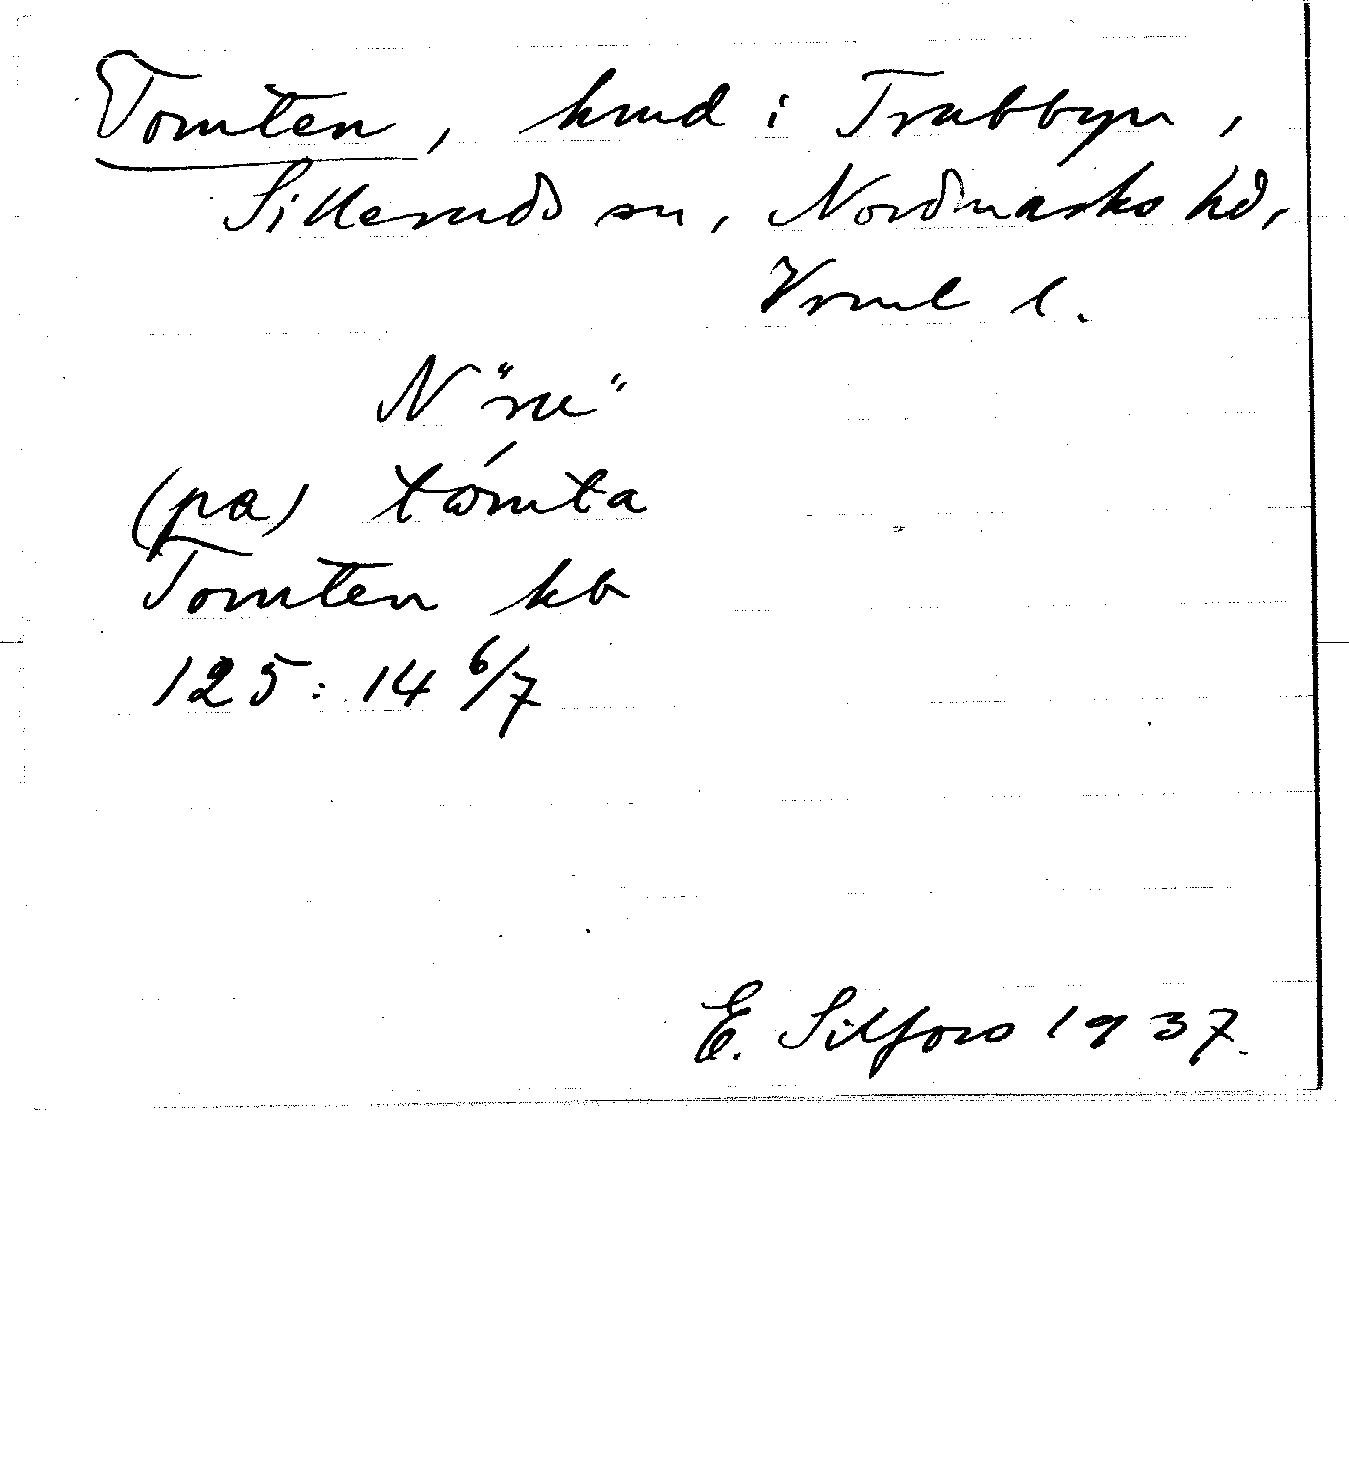 Tomten, hmd i Trabbyn,
Silleruds sn, Nordmarks hd,
Vrml l.
N "re"
(pa) tómta
Tomten kb
125:14 6/7
E. Silfors 1937.